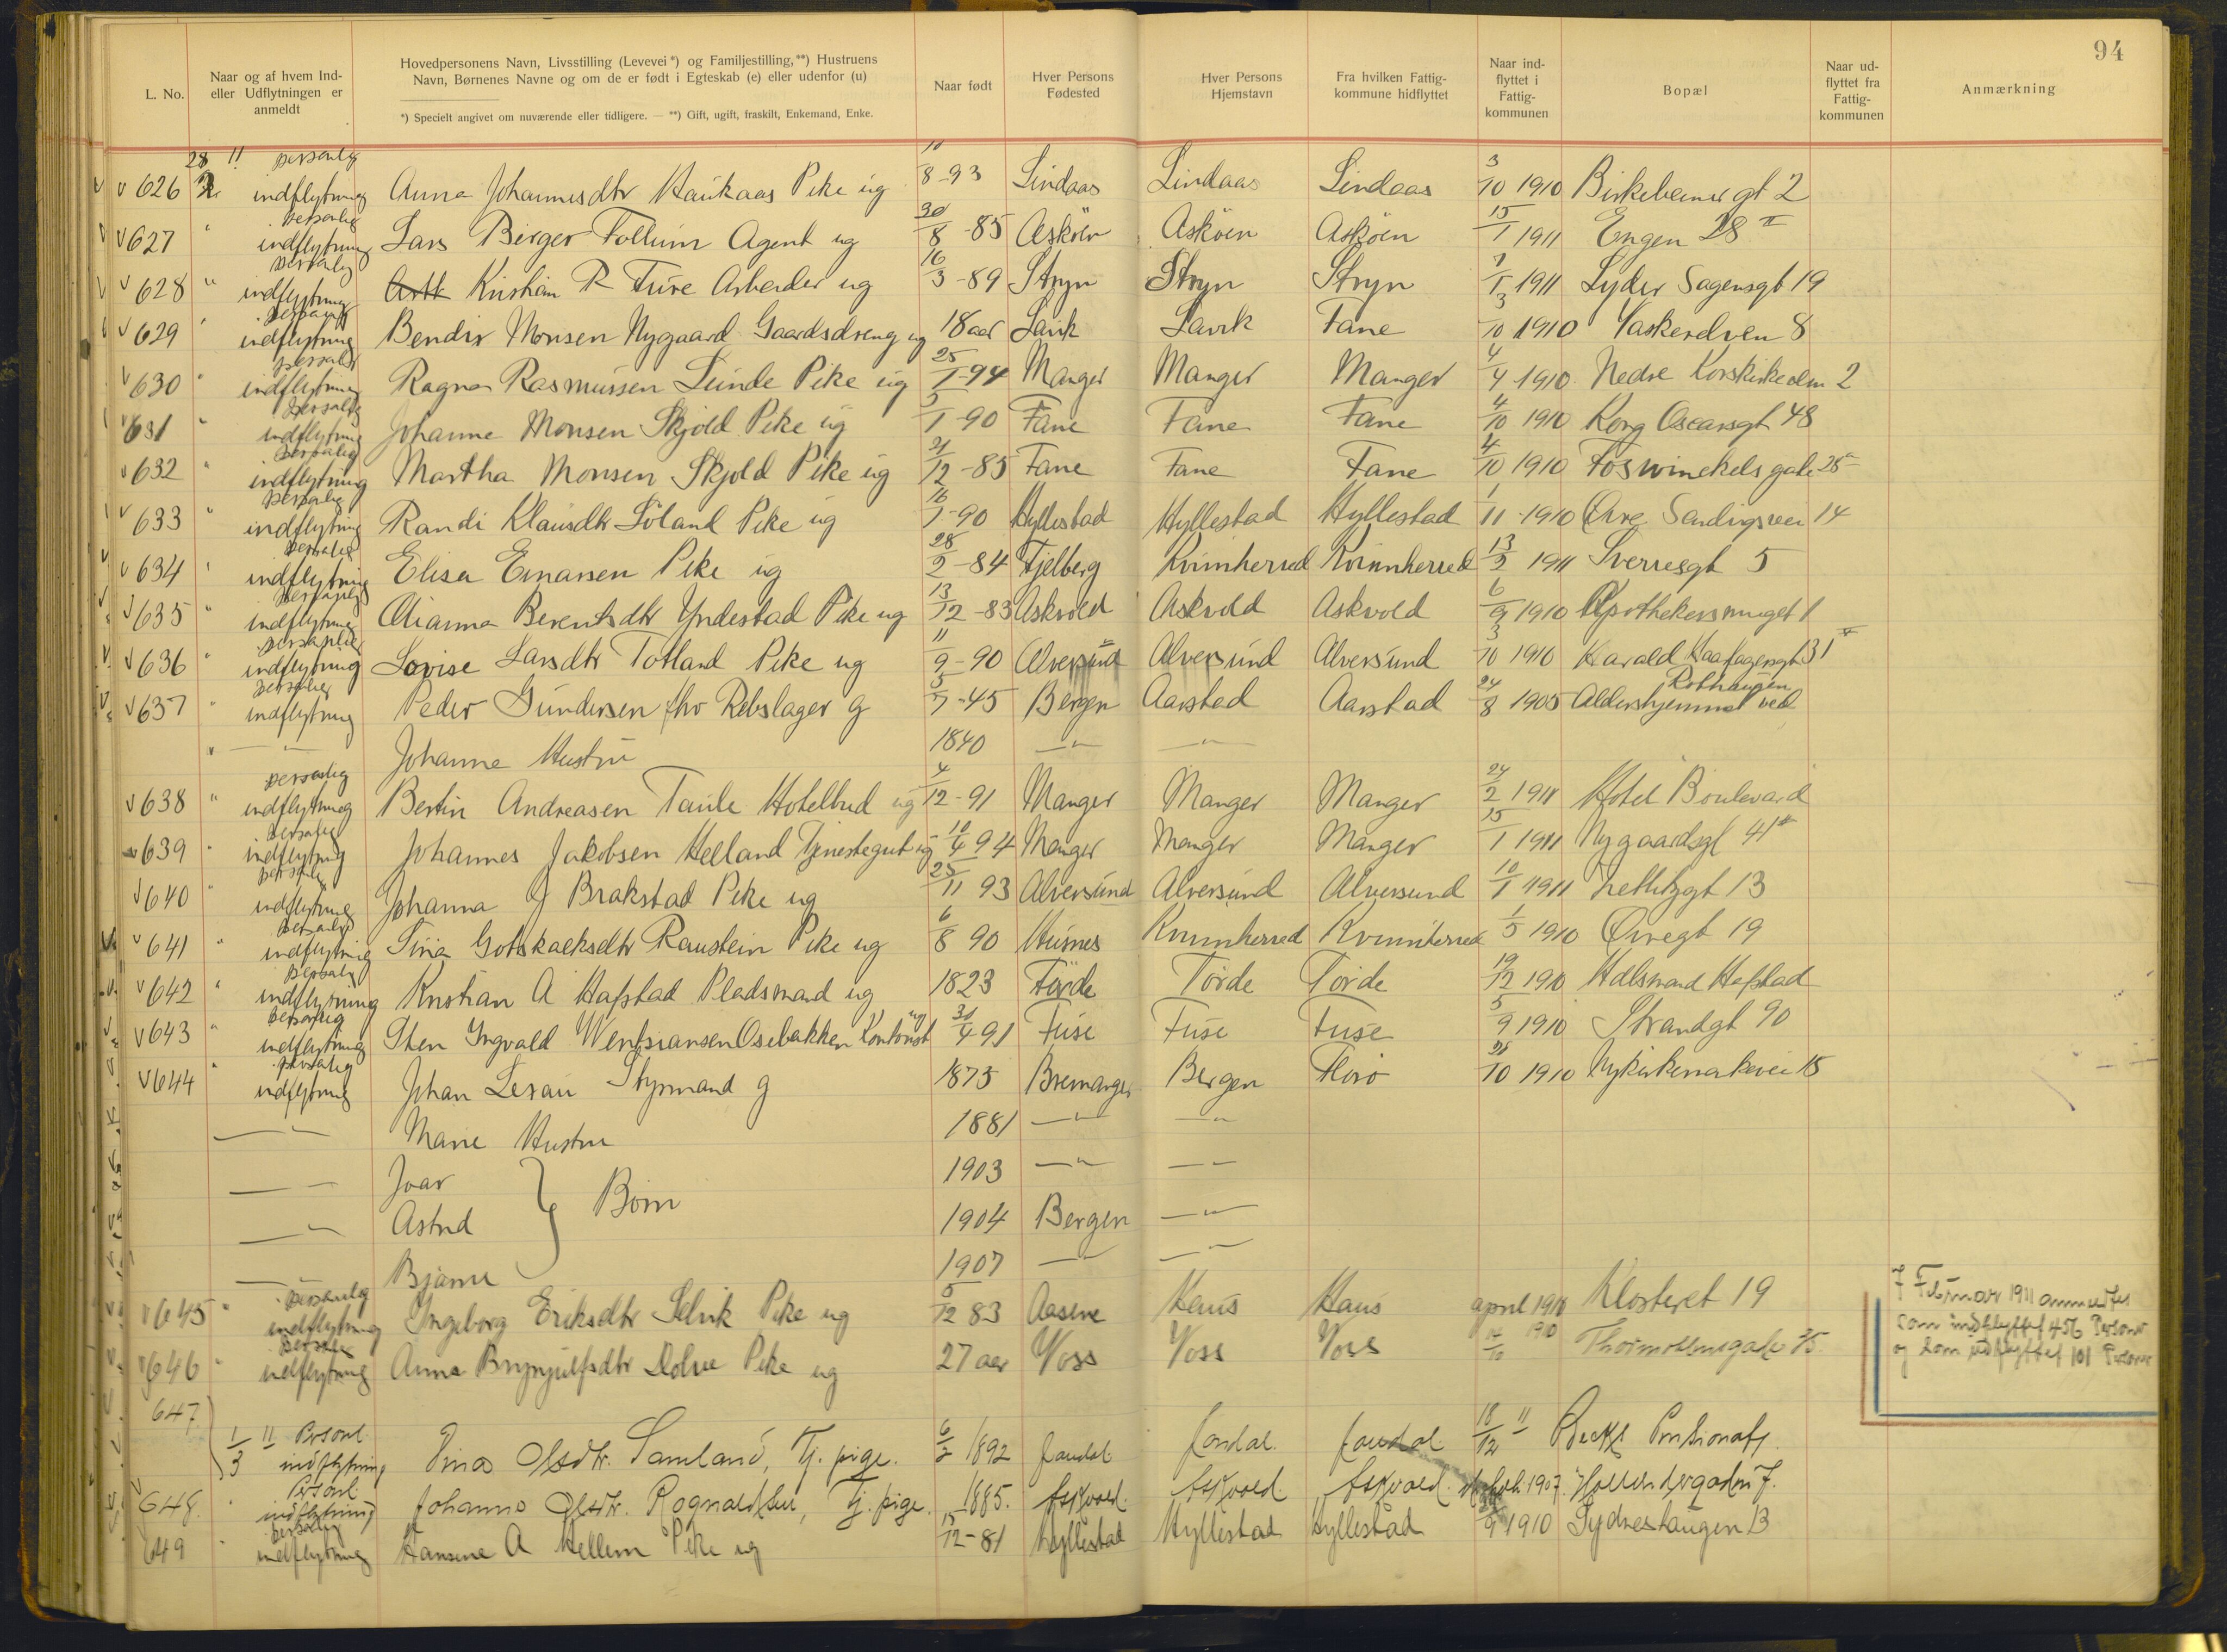 94
L. No.
Naar og af hvem Ind-
eller Udflytningen er
anmeldt
Hovedpersonens Navn, Livsstilling (Levevei *) og Familjestilling, **) Hustruens
Navn, Børnenes Navne og om de er født i Egteskab (e) eller udenfor (u)
*) Specielt angivet om nuværende eller tidligere. — **) Gift, ugift, fraskilt, Enkemand, Enke.
Naar født
Hver Persons
Fødested
Hver Persons
Hjemstavn
Fra hvilken Fattig-
kommune hidflyttet
Naar ind-
flyttet i
Fattig-
kommunen
Bopæl
Naar ud-
flyttet fra
Fattig-
kommunen
Anmærkning
626 28/2 11 personlig indflytning Anna Johannesdtr Haukaas Pike ug 10/8-93 Lindaas Lindaas Lindaas 3/10 1910 Birkebeinergt 2
627 " personlig indflytning Lars Birger Follum Agent ug 30/8-85 Askøen Askøen Askøen 15/1 1911 Engen 28 II
628 " personlig indflytning Kristian R Ture Arbeider ug 16/3-89 Stryn Stryn Stryn 1911 Lyder Sagensgt 19
629 " personlig indflytning Bendix Monsen Nygaard Gaardsdreng ug 18 aar Lavik Lavik Fane 3/10 1910 Vaskerelven 8
630 " personlig indflytning Ragna Rasmussen Lunde Pike ug 25/1-94 Manger Manger Manger 4/4 1910 Nedre Korskirkealm 2
631 " personlig indflytning Johanne Monsen Skjold Pike ug 5/1-90 Fane Fane Fane 4/10 1910 Kong Oscarsgt 48
632 " personlig indflytning Martha Monsen Skjold Pike ug 21/12-85 Fane Fane Fane 4/10 1910 Foswinckels gate 25
633 " personlig indflytning Randi Klausdtr Søland Pike ug 16/1-90 Hyllestad Hyllestad Hyllestad 1/11-1910 Øvre Sandvigsvei 14
634 " personlig indflytning Elisa Einarsen Pike ug 28/2-84 Fjelberg Kvinnherred Kvinnherred 13/2 1911 Sverresgt 5
635 " personlig indflytning Berentsdtr Yndestad Pike ug 13/12-83 Askvold Askvold Askvold 6/9 1910 Apothekersmuget 1
636 " personlig indflytning Lovise Larsdtr Totland Pike ug 11/9-90 Alversund Alversund Alversund 3/10 1910 Harald Haarfagersgt 31 II
637 " personlig indflytning Peder Gundersen fhv Rebslager g 5/7-45 Bergen Aarstad Aarstad 24/8 1905 Aldershjemmet ved Rothaugen
" — " — Johanne Hustru 1840 — " — — " —
638 " personlig indflytning Bertin Andreasen Taule Hotelbud ug 4/12-91 Manger Manger Manger 24/2 1911 Hotel Boulevard
639 " personlig indflytning Johannes Jakobsen Helland Tjenestegut ug 10/4 94 Manger Manger Manger 15/1 1911 Nygaardsgt 41 II
640 " personlig indflytning Johanna J Brakstad Pike ug 25/11 93 Alversund Alversund Alversund 10/1 1911 13
641 " personlig indflytning Gotskalksdtr Raustein Pike ug 6/8 90 Husnes Kvinnherred Kvinnherred 1/5 1910 Øvregt 19
642 " personlig indflytning Kristian A Hafstad Pladsmand ug 1823 Førde Førde Førde 19/12 1910 Hafstad
643 " personlig indflytning Sten Ingvald Wentsiansen Osebakken Kontorist ug 30/4 91 Fuse Fuse Fuse 5/9 1910 Strandgt 90
644 " personlig indflytning Johan Lexau Styrmand g 1875 Bremanger Bergen Florø 28/10 1910 Nykirkemarkevei 15
— " — Marie Hustru 1881 — " — — " —
— " — Ivar 1903 — " — — " —
— " — Astrid } Børn 1904 Bergen — " —
— " — Bjarne 1907 — " — — " —
645 " personlig indflytning Ingeborg Eriksdtr Selvik Pike ug 5/12 83 Aasene Haus Haus april 1910 Klosteret 19
646 " personlig indflytning Anna Brynjulfsdtr Dolve Pike ug 27 aar Voss Voss Voss 14/10 1910 Thormøhlensgate 35
7 Februar 1911 anmeldtes
som indflyttet 456 Personer
og som udflyttet 101 Personer
647 1/3 11 Personl. indflytning Olsdtr. Samland, Tj. pige. 6/2 1892 Jondal Jondal. Jondal 18/12 11 Pensionat
648. " Personl. indflytning Johanna Olsdtr. Rognaldsen, Tj. pige. 1885. Askvold. Askvold. Askvold. 1907. Hollendergaden 7.
649 personlig indflytning Hansine A Hellem Pike ug 15/12-81 Hyllestad Hyllestad Hyllestad 1910 Sydneshaugen 13